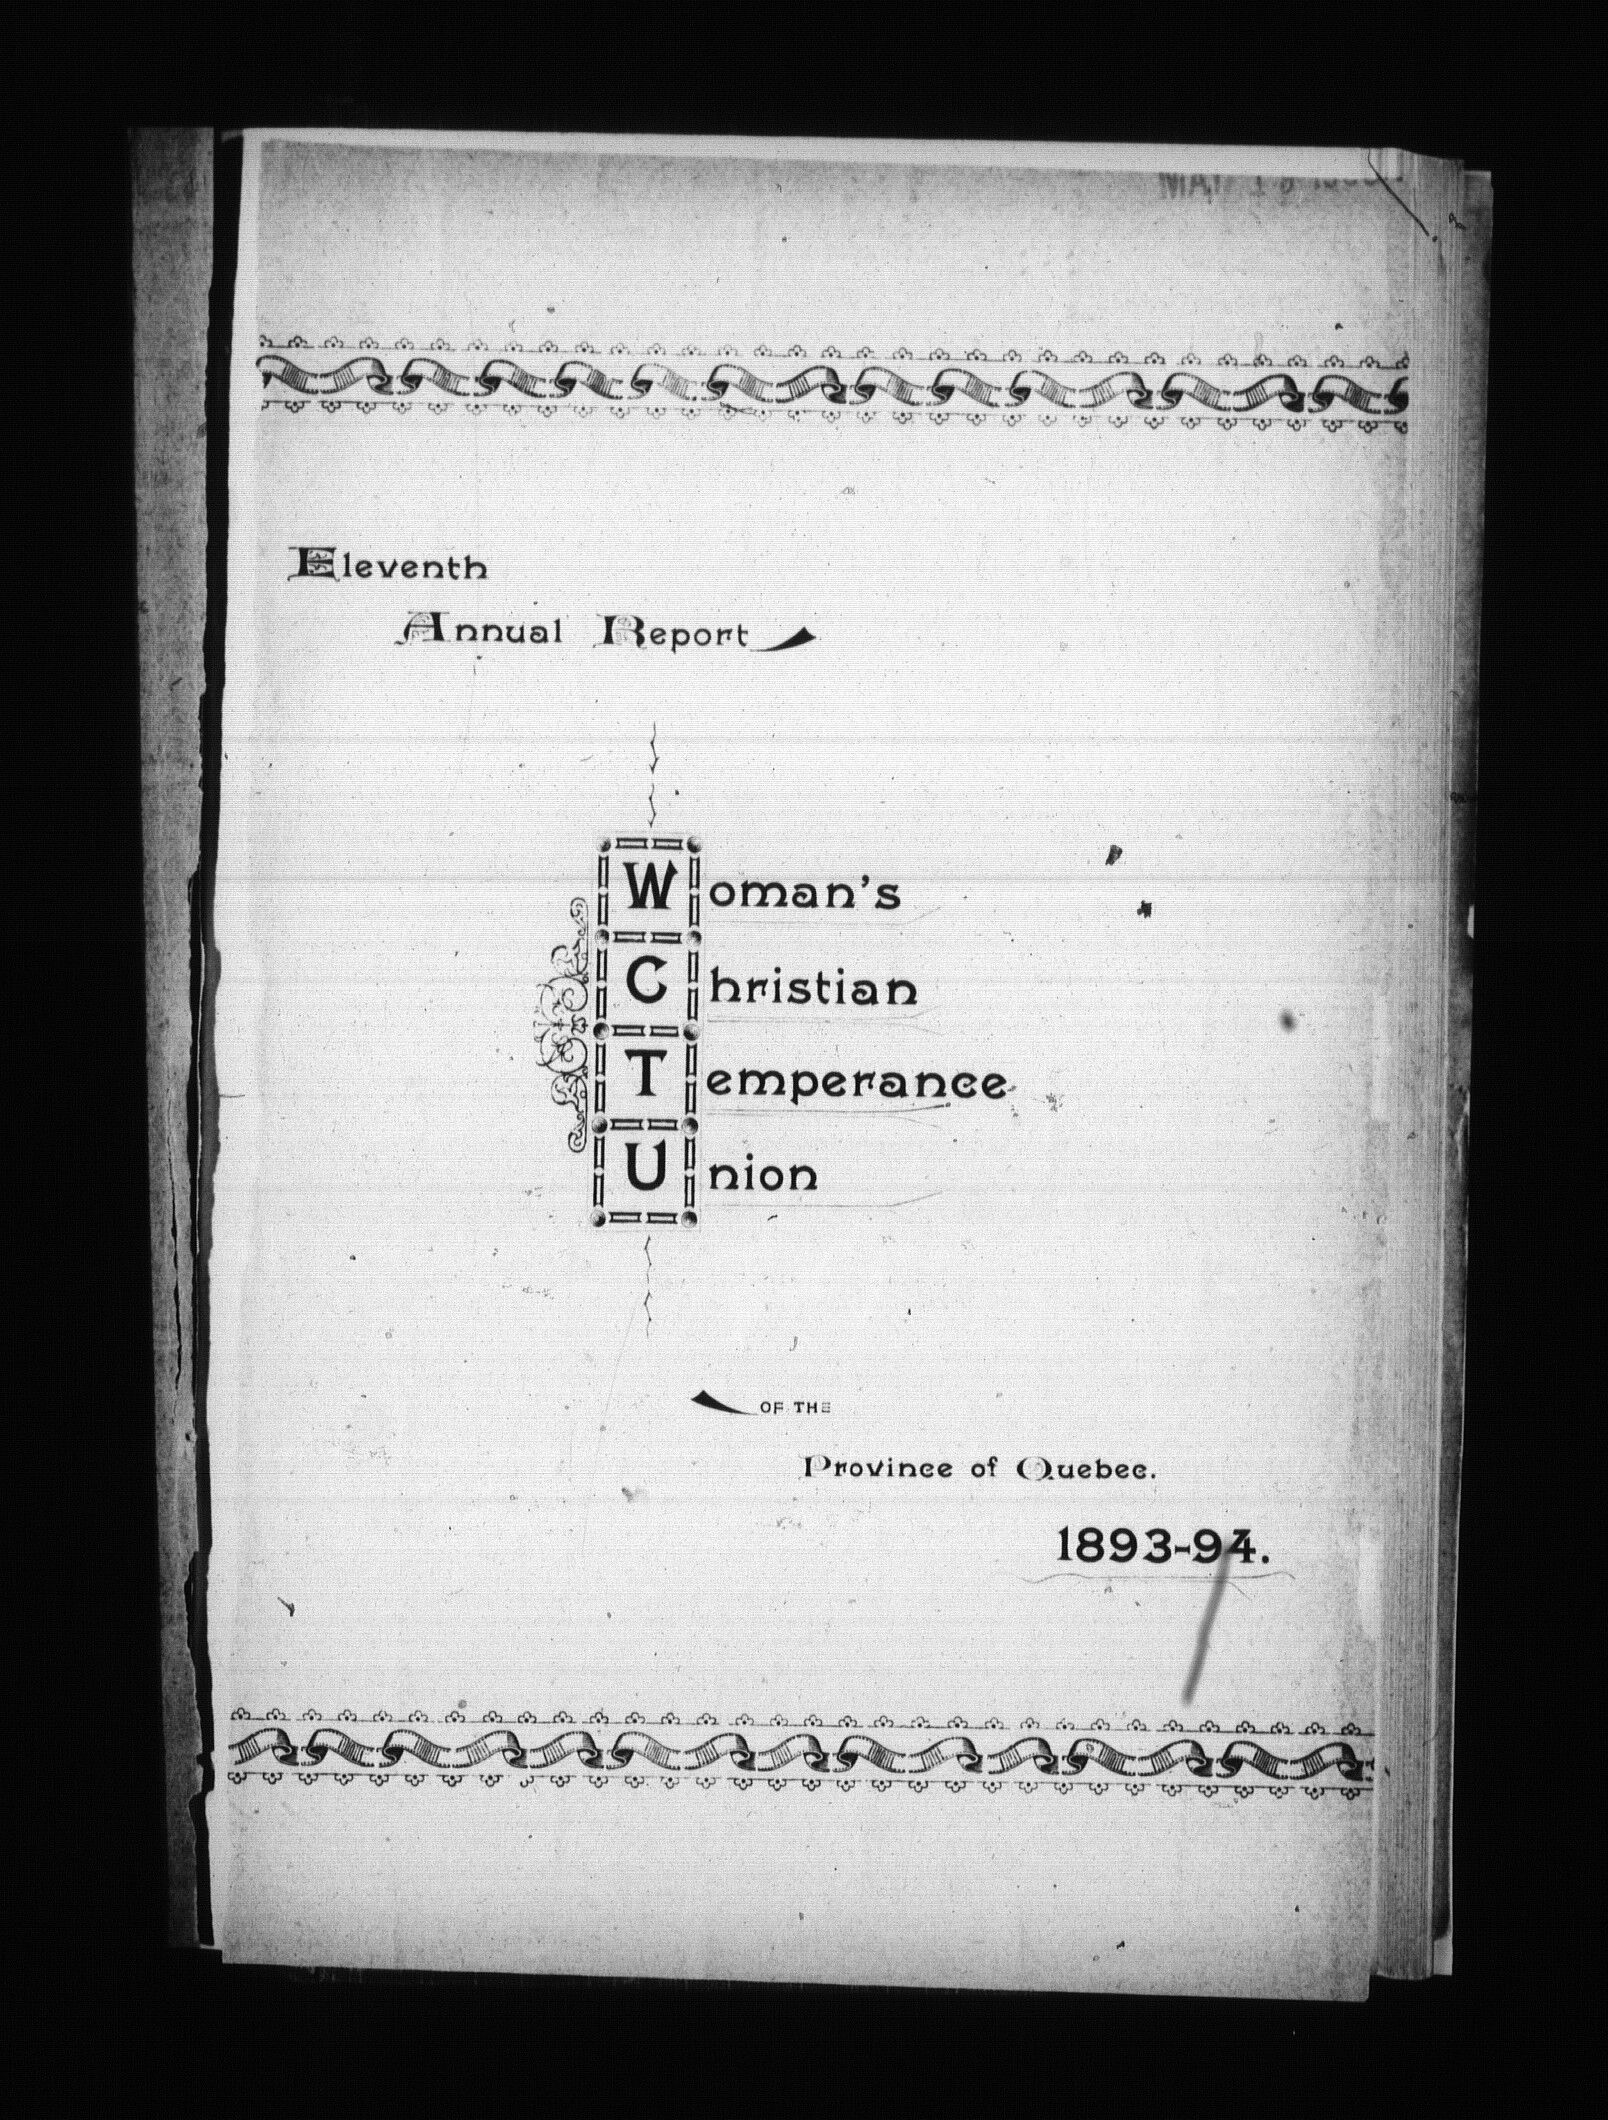 Eleventh
Annual Report
Woman's
Christian
Temperance
Union
OF THE
Province of Quebec.
1893-94.